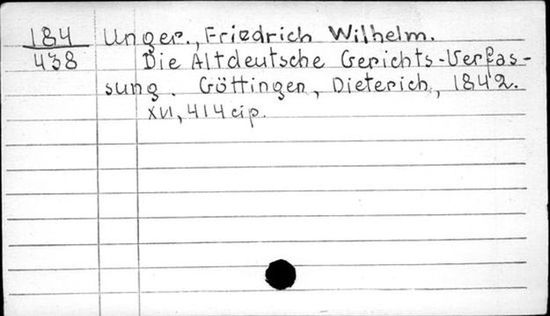 184 Unger., Friedrich Wilhelm.
438 Die Altdeutsche Gerichts-Verfas-
sung. Göttingen, Dieterich, 1842.
XVI, 414 cip.